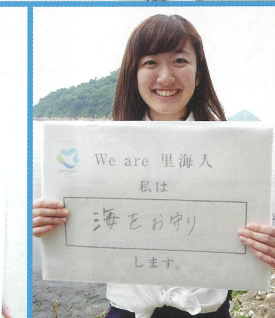 We are 里海人
私は
海をお守り
します。